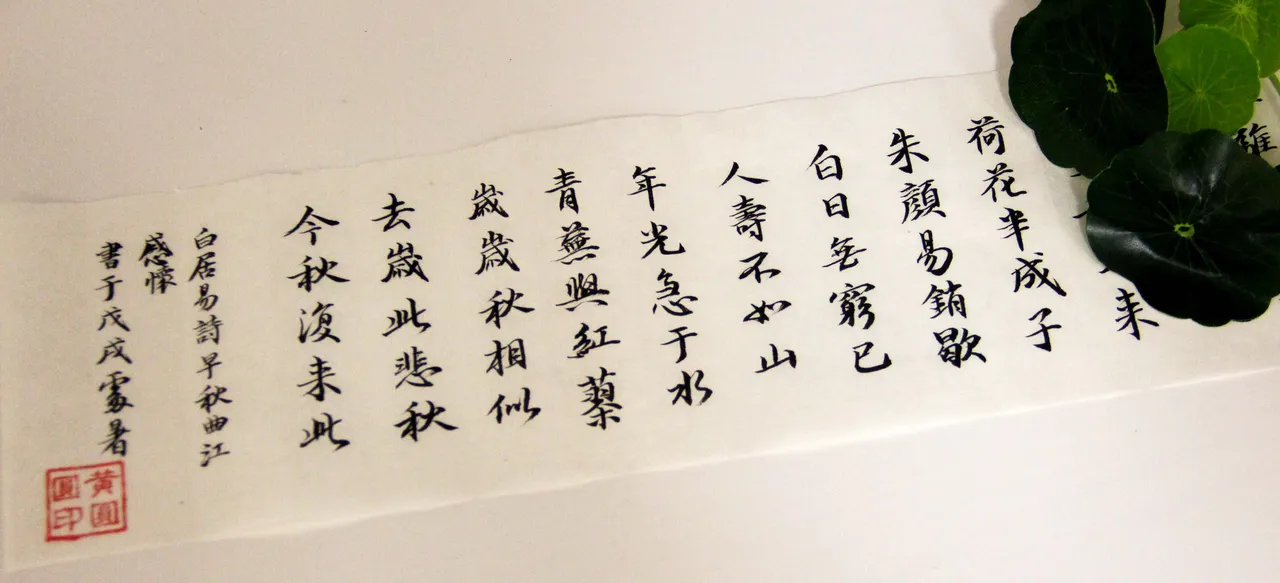 離
来
荷花半成子
朱顔易銷歇
白日無窮已
人壽不如山
年光急于水
青蕪與紅蓼
歲歲秋相似
去歲此悲秋
今秋復来此
白居易詩早秋曲江
感懷
書于戊戌處暑
黃圓
圓印